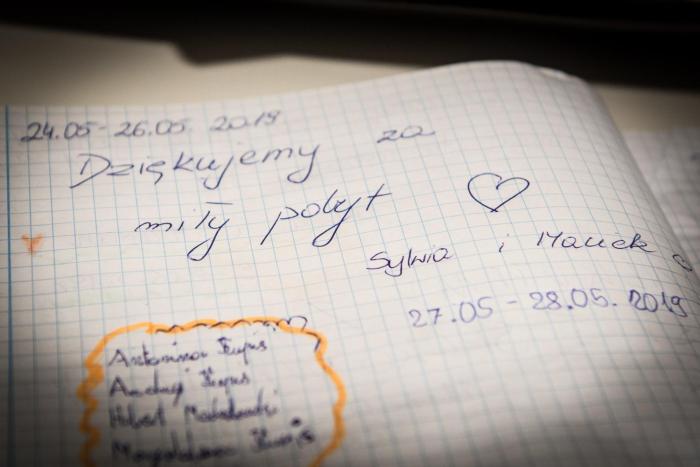 24.05-26.05. 2019
Dziękujemy za
miły pobyt
Sylwia i Maciek
27.05 - 28.05. 2019
Antonina
Andrzej
Hubert
Magdalena